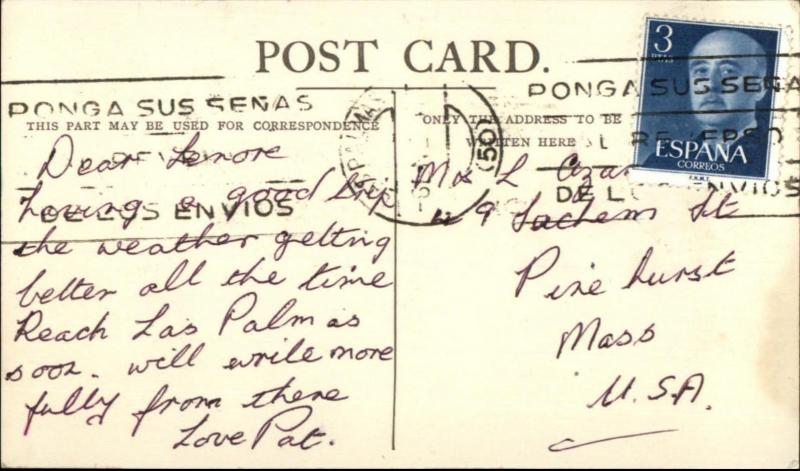 POST CARD.
THIS PART MAY BE USED FOR CORRESPONDENCE
ONLY THE ADDRESS TO BE
WRITTEN HERE
PONGA SUS SEÑAS
DE LOS ENVIOS
PONGA SUS SEÑA
DE L ENVIOS
PALMA
(50)
3
PTAS
ESPAÑA
CORREOS
F.N.M.T.
Dear Lenore
having a good trip
the weather getting
better all the time
Reach Las Palmas
soon. will write more
fully from there
Love Pat.
L
St
Pine hurst
Mass
U.S.A.